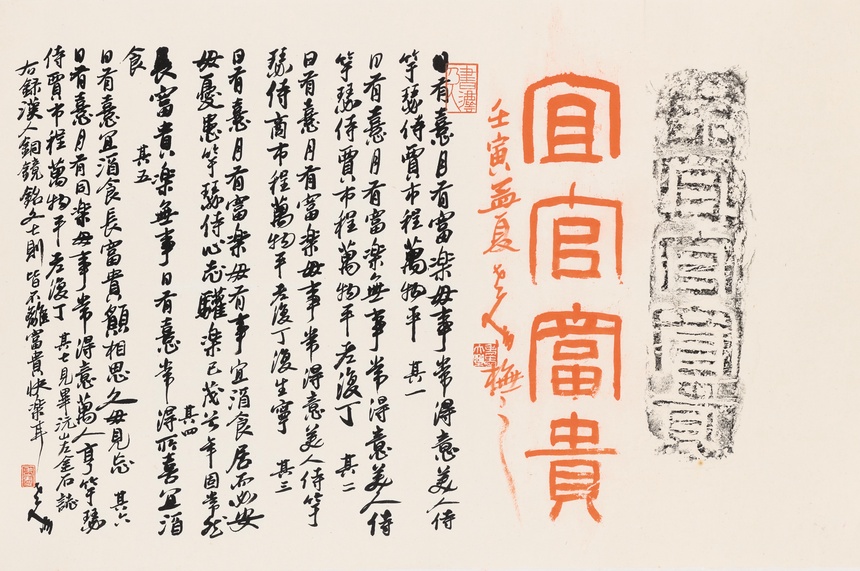 宜官富貴
宜官富貴
壬寅孟夏
日有憙月有富樂毋事常得意美人侍
竽瑟侍賈市程萬物平 其一
日有憙月有富樂無事常得意美人侍
竽瑟侍賈市程萬物平老復丁 其二
日有憙月有富樂毋事常得意美人侍竽
瑟侍商市程萬物平老復丁復生寧 其三
日有憙月有富樂毋有事宜酒食居而必安
毋憂患竽瑟侍心志驩樂已茂兮年固常然
其四
長富貴樂無事日有憙常得所喜宜酒
食 其五
日有憙宜酒食長富貴願相思久毋見忘 其六
日有憙月有同樂毋事常得意萬人亨竽瑟
侍賈市程萬物平老復丁 其七見畢沅山左金石誌
右録漢人銅鏡銘文七則皆不離富貴快樂耳